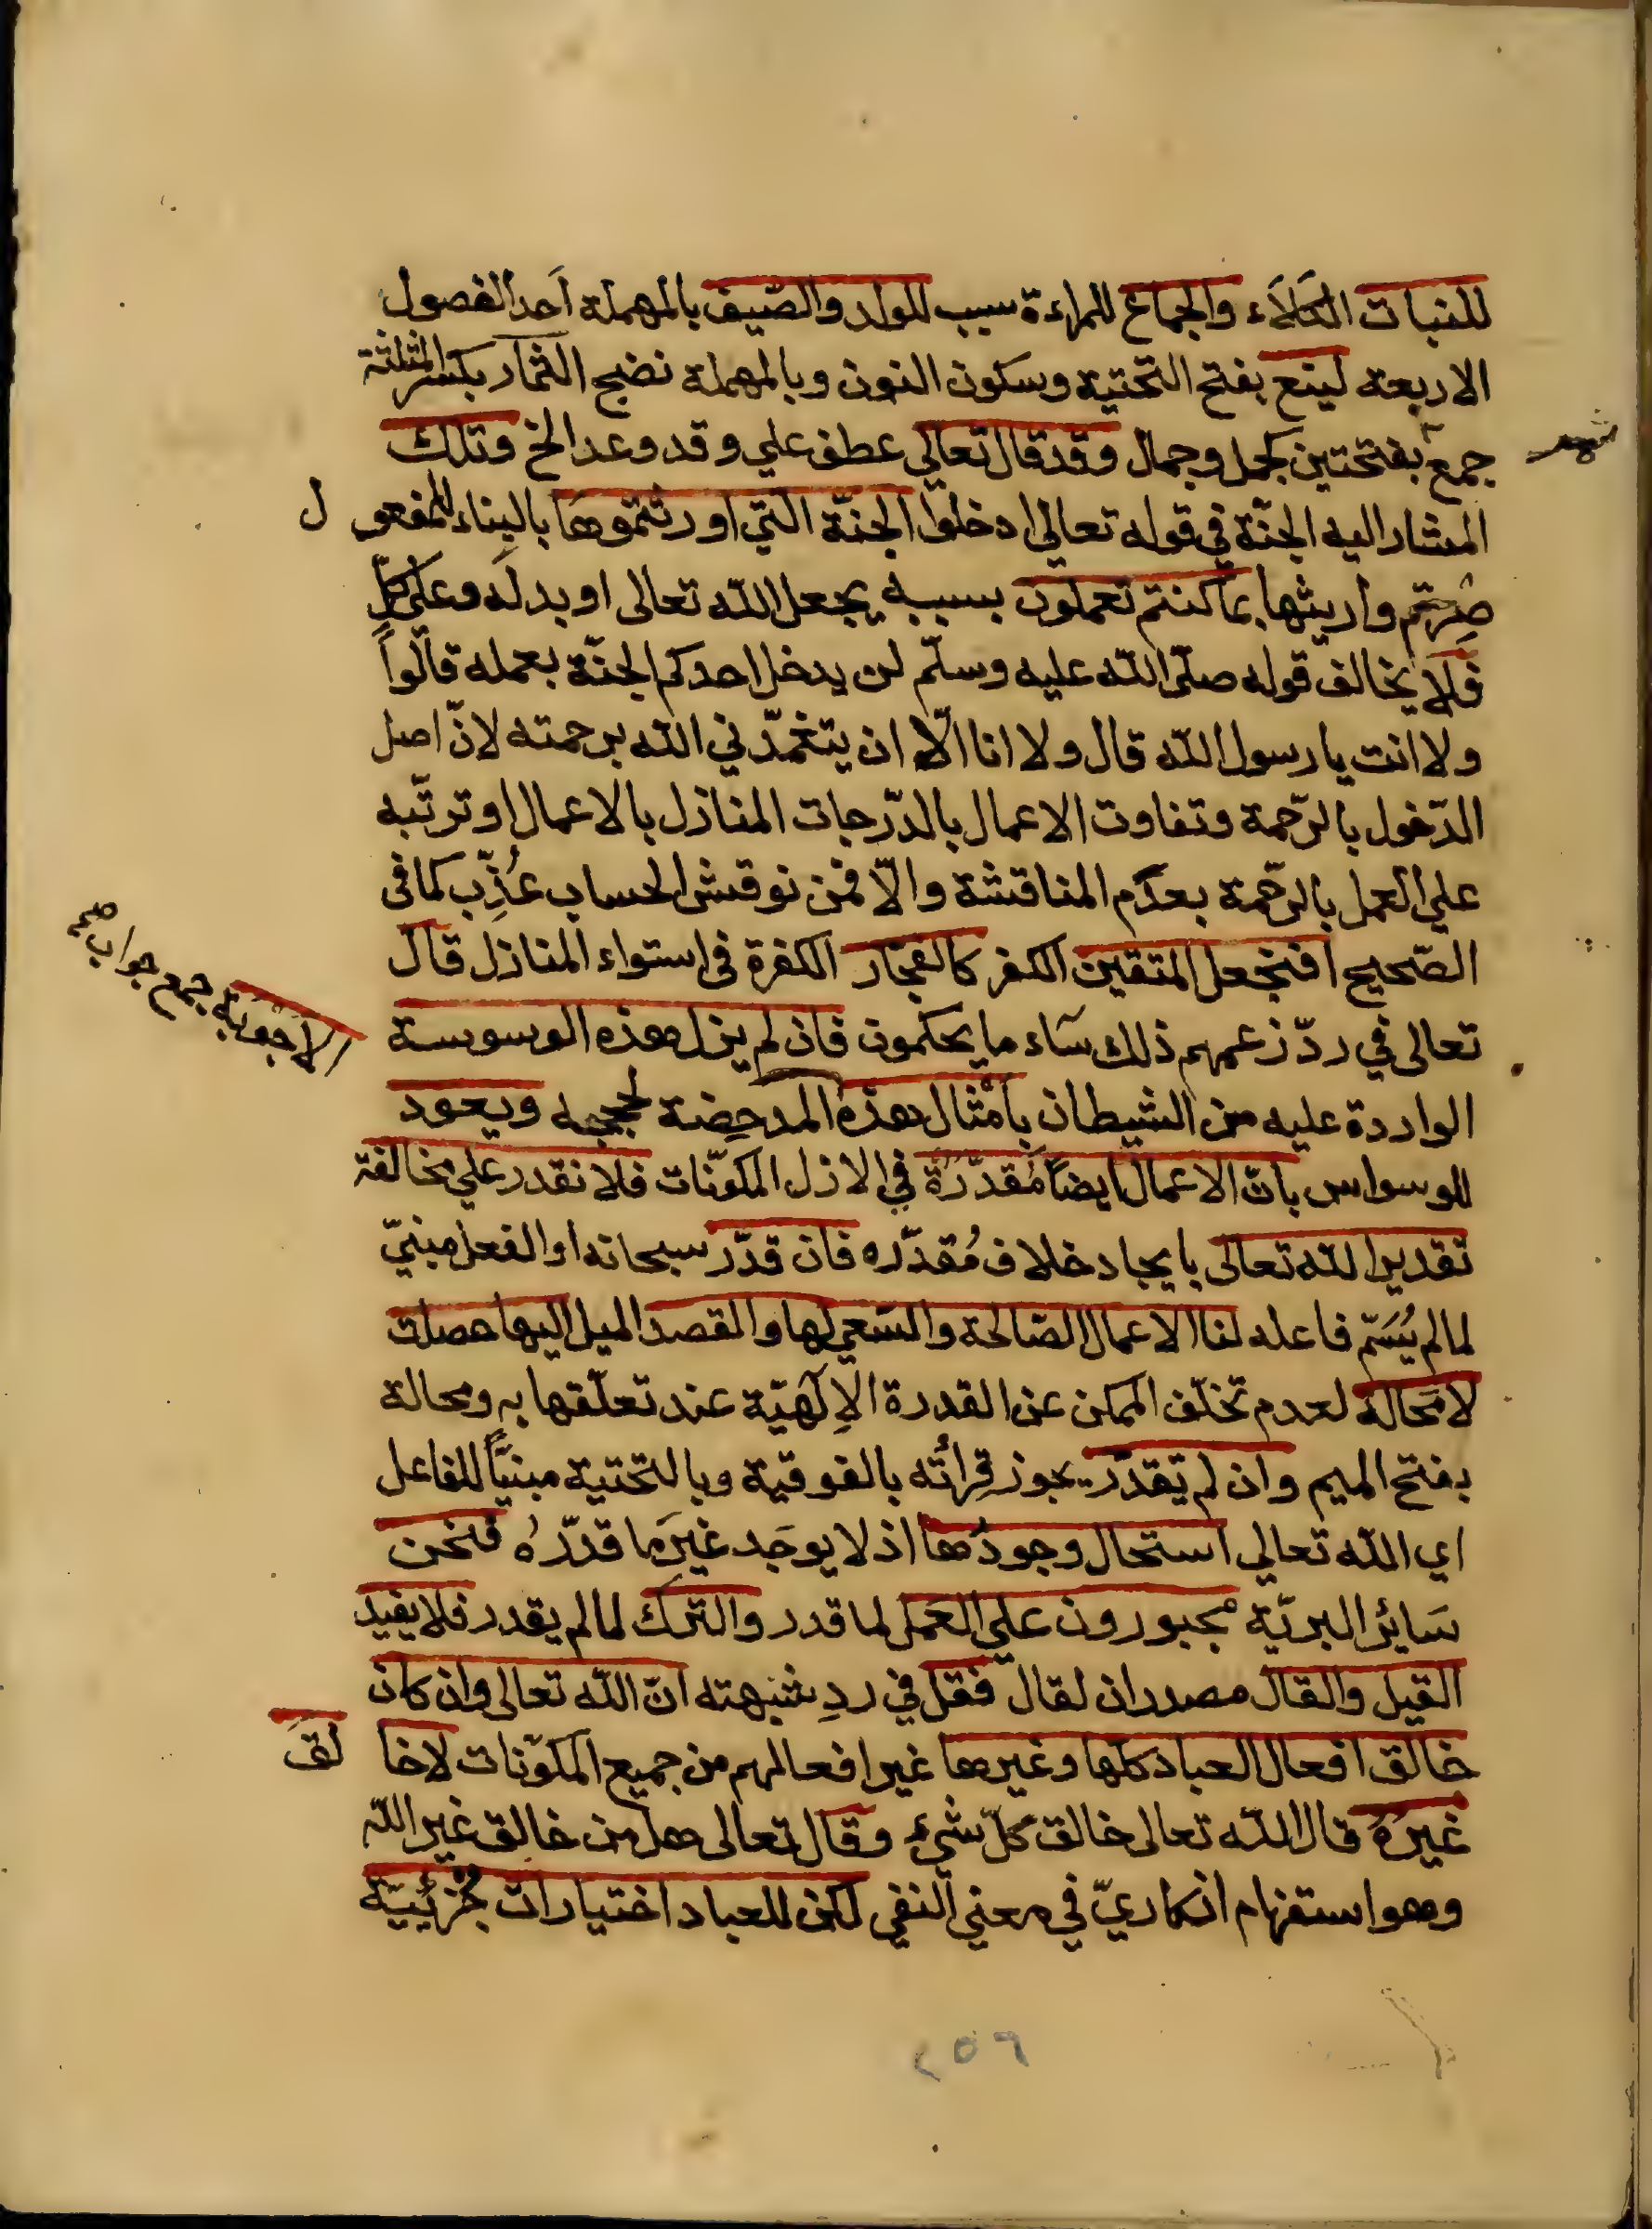 للنبات الكَلَاء والجماع للمراءة سبب للولد والصّيف بالمهملة اَحد الفصول
الاربعة لينع بفتح التحتية وسكون النون وبالمهملة نضج الثمار بكسر المثلثة
جمع بفتحتين كجمل وجمال وقد قال تعالي عطف علي وقد وعد الخ وتلك
المشار اليه الجنّة في قوله تعالي ادخلوا الجنّة التي اورثتموها بالبناء للمفعول
صِرتم وارثيها بما كنتم تعملون بسببه يجعل الله تعالى او بدله وعلى كلٍّ
فلا يخالف قوله صلّى الله عليه وسلّم لن يدخل احدكم الجنّة بعمله قالواً
ولا انت يا رسول الله قال ولا انا الّا ان يتغمّدني الله برحمته لانّ اصل
الدّخول بالرّحمة وتفاوت الاعمال بالدّرجات المنازل بالاعمال او ترتّبه
علي العمل بالرّحمة بعدَم المناقشة والّا فمن نوقش الحساب عُذِّب كما فى
الصّحيح افنجعل المتقين الكفر كالفجار الكفرة فى استواء المنازل قال
تعالى في ردّ زعمهم ذلك سَاء ما يحكمون فان لم يزل هذه الوسوسة
الاجوبة جمع جواب صح
الواردة عليه من الشيطان بامثال هذه المدحِضة لحججه ويعود
للوسواس بانّ الاعمال ايضًا مُقدّرَةٌ في الازل المكوّنات فلا نقدر علي مخالفة
تقدير الله تعالى بايجاد خلاف مُقدّره فان قدّر سبحانه او الفعل مبنيّ
لما لم يُسَمّ فاعله لنا الاعمال الصّالحة والسّعي لها والقصد الميل اليها حصلت
لا مَحالة لعدم تخلّف الممكن عن القدرة الاِلٓهيّة عند تعلّقها به ومحالة
بفتح الميم وان لم يقدّر يجوز قرائته بالفوقية وبالتحتية مبنيّاً للفاعل
اي الله تعالي استحال وجودُها اذ لا يوجَد غيرَ ما قدّرهُ فنحن
سَائر البريّة مجبورون علي العمل لما قدر والترك لما لم يقدر فلا يفيد
القيل والقال مصدران لقال فقل في ردِ شبهته انّ الله تعالى وان كان
خالق افعال العباد كلها وغيرها غير افعالهم من جميع المكوّنات لا خالقَ
غيرَهُ قال الله تعالى خالق كلّ شيْء وقال تعالى هل من خالق غير الله
وهو استفهام انكاريّ في معني النفي لكن للعباد اختيارات جُزْئيّة
٢٥٦